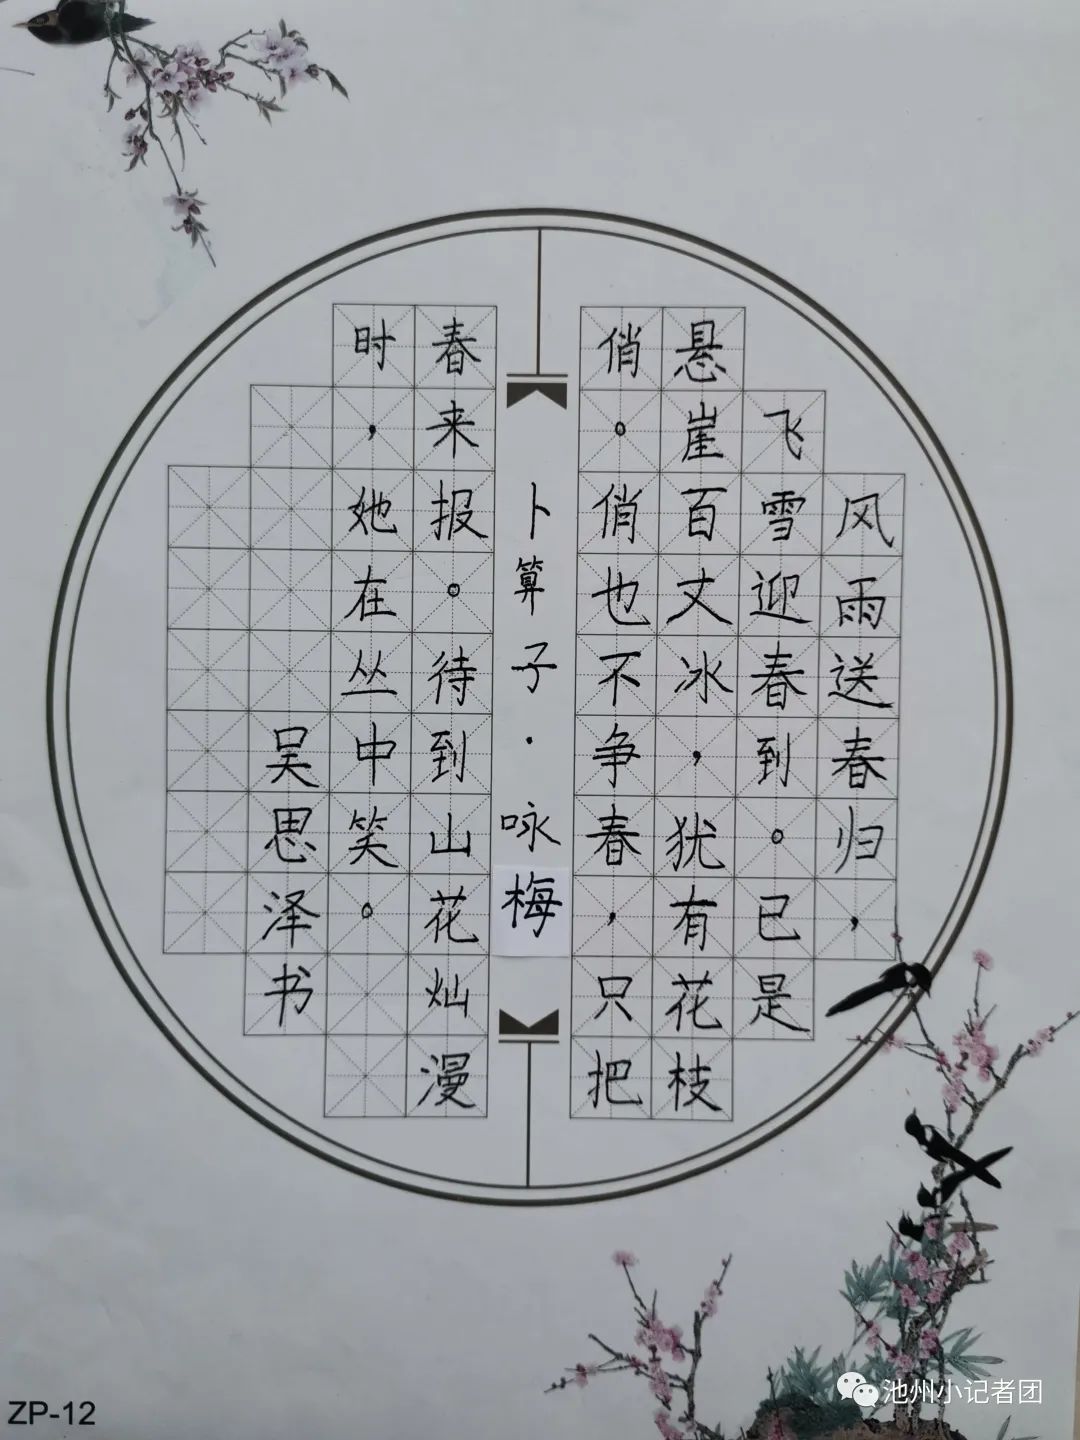 风雨送春归，
飞雪迎春到。已是
悬崖百丈冰，犹有花枝
俏。俏也不争春，只把
卜算子·咏梅
春来报。待到山花灿漫
时，她在丛中笑。
吴思泽书
ZP-12
池州小记者团